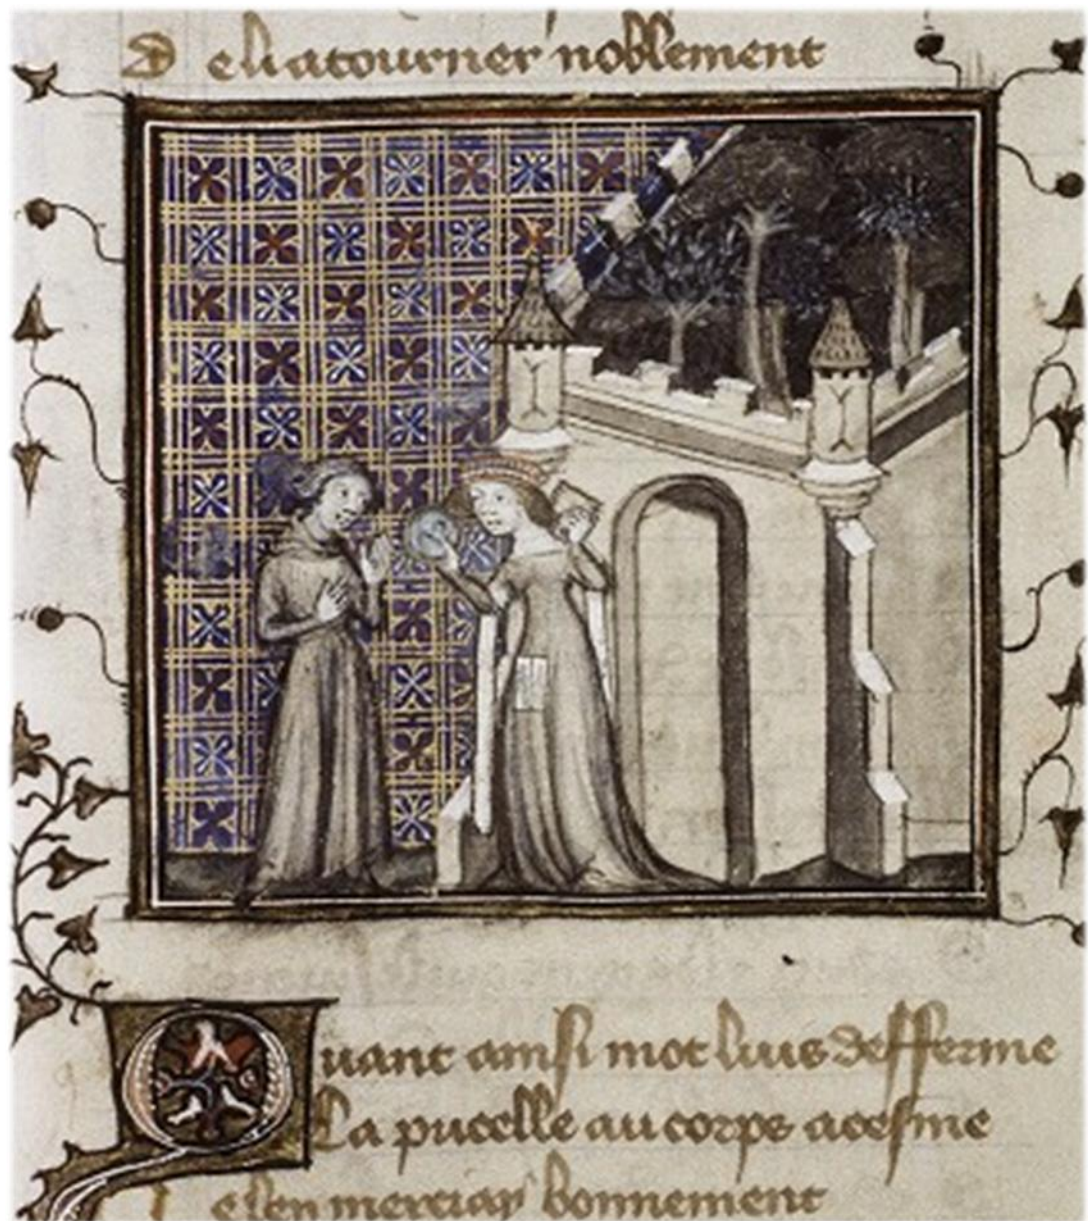 De li atourner noblement
Quant ainsi mot luis defferme
La pucelle au corps acesme
Je len merciay bonnement